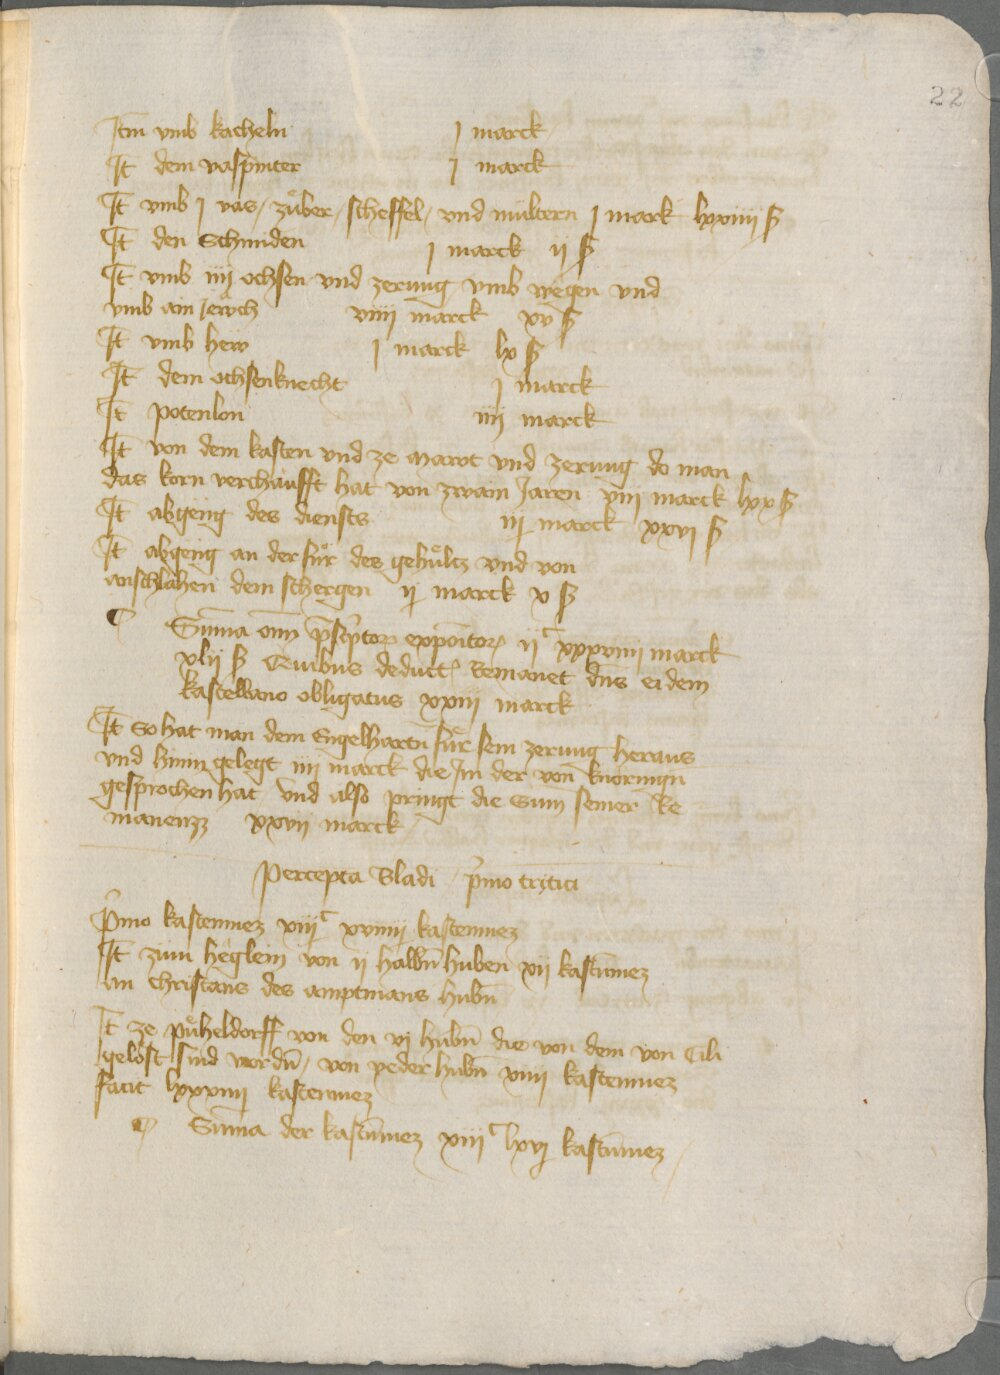 22
Itm vmb kacheln j marck
It dem vaspinter j marck
It vmb j vas / zuͤber / scheffel / vnd multern j marck lxxiiij ₰
It den Schmiden j marck ij ₰
It vmb iiij ochsen vnd zerung vmb wegen vnd
vmb ain Jewch viiij marck xv ₰
It vmb hew j marck lx ₰
It dem ochsenknecht j marck
It potenlon iiij marck
It von dem kasten vnd ze marct vnd zerung do man
das korn verchaufft hat von zwain Jaren viij marck lxx ₰
It abgeng des diensts iij marck xxvj ₰
It abgeng an der fuͤr des gehuͤltz vnd von
anschlahen dem schergen ij marck v ₰
Summa omn p̄scptor expoitor ij c xxxviiij marck
xlij ₰ Quibus deduct Remanet dns eidem
kastellano obligatus xxiij marck
It So hat man dem Engelhartn fuͤr sein zerung heraus
vnd hinin gelegt iiij marck die Im der von knoringn
gesprochen hat vnd also pringt die Sum seiner Re
manenzz xxvij marck
Percepta Bladi p̄mo tritici
P̄mo kastenmez viij c xviiij kastenmez
It zum heglein von ij halbn huben xij kastnmez
an Christans des amptmans hubn
It ze puͤheldorff von den vj hubn die von dem von Cili
geloͤst sind wordn / von yeder hubn xiiij kastenmez
facit lxxxiiij kastenmez
Summa der kastnmez viiij c lxvj kastnmez